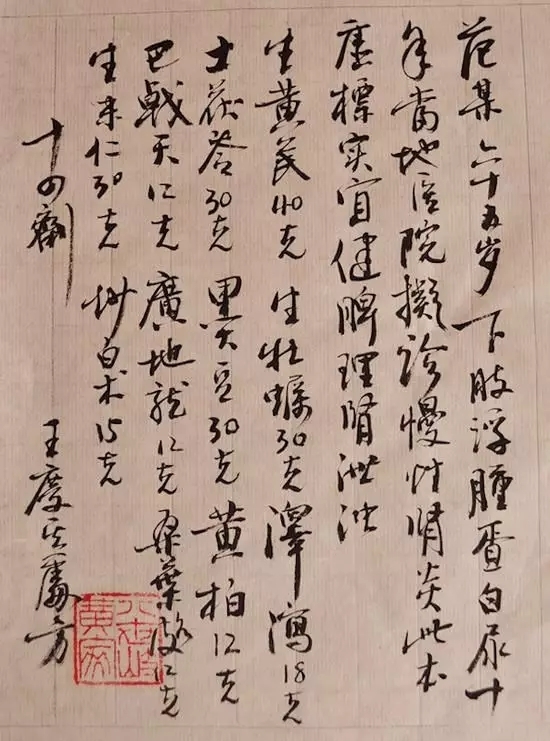 范某六十五岁 下肢浮腫蛋白尿十
年當地医院擬诊慢性腎炎此本
虚標实宜健脾理腎泄浊
生黄芪40克 生牡蛎30克 澤瀉18克
土茯苓30克 黑大豆30克 黄柏12克
巴戟天12克 廣地龍12克 桑葉皮12克
生米仁30克 炒白术15克
十四劑
王慶其處方